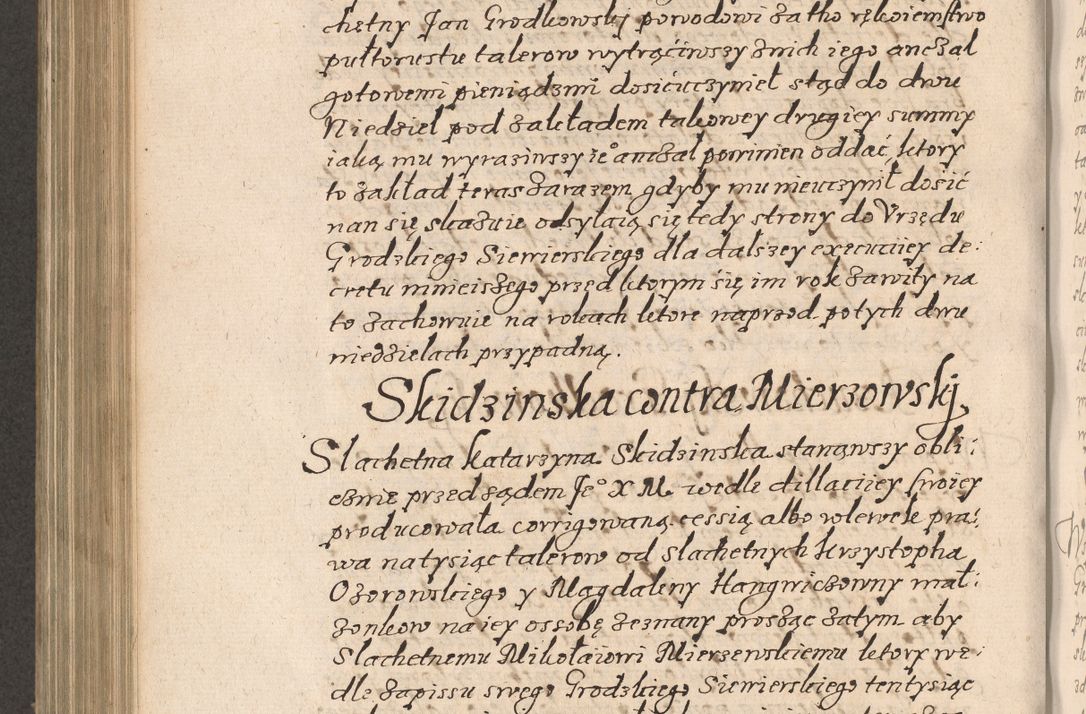 chetny Jan Grodkowskj powodowi za tho rękoiemstwo
pułtorustu talerow wytrąciwszy z nich iego anczal
gotowemi pieniądzmi dosicuczynieł stąd do dwu
Niedziel pod zakładem takowey drugiey summy
iaką mu wyraziwszy ie° anczal powinien oddać, ktory
to zakład teraz zarazem gdyby mu nieuczynił dosić
nan się skazuie odsylaią się tedy strony do Vrzędu
Grodzkiego Siewierskiego dla dalszey executiiey de:
cretu ninieiszego przed ktorym się im rok zawity na
to zachowuie na rokach ktore naprzod potych dwu
niedzielach przypadną.
Skidzinska contra Mierzowskj
Slachetna Katarzyna Skidzinska stanąwszy obli:
cznie przed sądem Je° X M. wedle dillatiiey swoiey
producowała corrigowaną cessią albo wlewek pra:
wa na tysiąc talerow od slachetnych Krzystopha
Ozorowskiego y Magdaleny Hangwiczowny mał:
zonkow na iey ossobę zeznany prosząc zatym aby
Slachetnemu Mikołaiowi Mierzewskiemu ktory we:
dle zapissu swego Grodzkiego Siewierskiego ten tysiąc